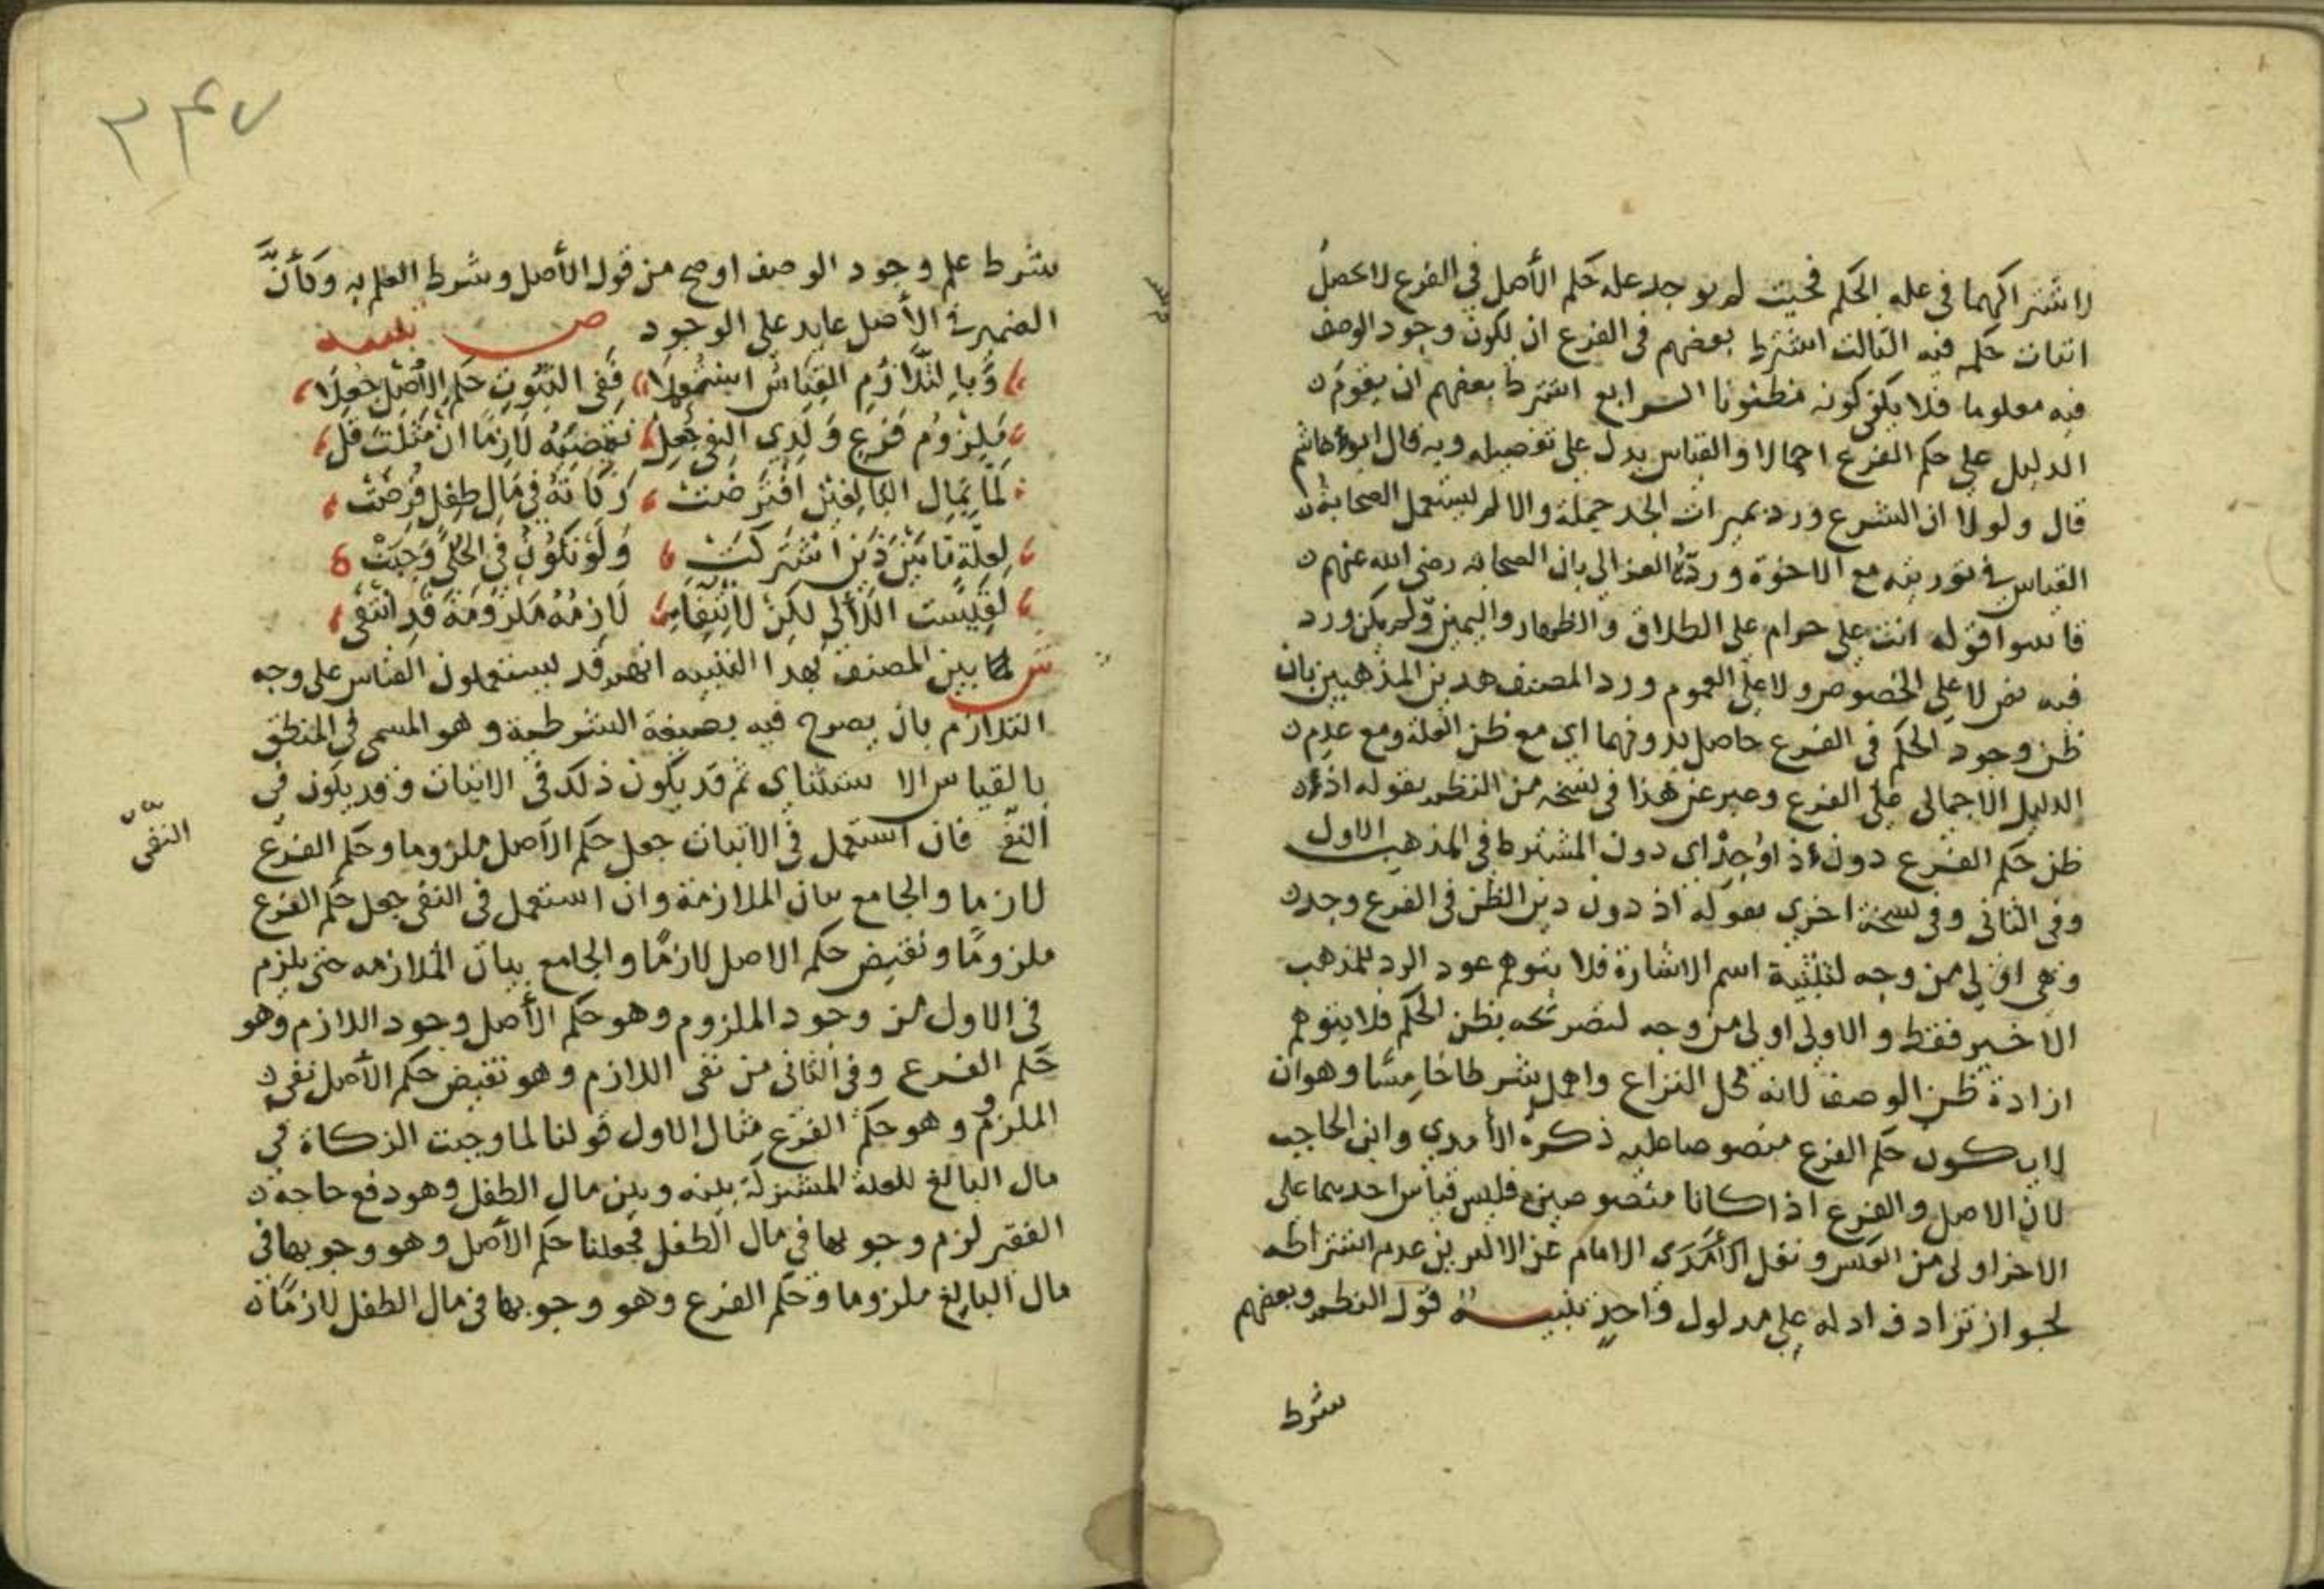 لاشتراكهما في علة الحكم فحيث لم يوجد علة حكم الأصل في الفرع لا يحصل
اثبات حكمه فيه الثالث اشترط بعضهم في الفرع ان يكون وجود الوصف
فيه معلوما فلا يكفى كونه مظنونا الرابع اشترط بعضهم ان يقوم
الدليل على حكم الفرع اجمالا والقياس يدل على تفصيله وبه قال ابو هاشم
قال ولولا ان الشرع ورد بميراث الجد جملة والا لم يستعمل الصحابة
القياس في توريثه مع الاخوة وردّه الغزالي بان الصحابة رضي الله عنهم
قاسوا قوله انت علي حرام على الطلاق والظهار واليمين ولم يكن ورد
فيه نص لا على الخصوص ولا على العموم ورد المصنف هذين المذهبين بان
ظن وجود الحكم في الفرع حاصل بدونهما اي مع ظن العلة ومع عدم
الدليل الاجمالي على الفرع وعبر عن هذا في نسخة من النظم بقوله اذ
ظن حكم الفرع دون اذ اوجد اي دون المشترط في المذهب الاول
وفي الثاني وفي نسخة اخرى بقوله اذ دون دين الظن في الفرع وجد
وهي اولى من وجه لتثنية اسم الاشارة فلا يتوهم عود الرد للمذهب
الاخير فقط والاولى اولى من وجه لتصريحه بظن الحكم فلا يتوهم
ارادة ظن الوصف لانه محل النزاع واهمل شرطا خامسا وهو ان
لا يكون حكم الفرع منصوصا عليه ذكره الأمدي وابن الحاجب
لان الاصل والفرع اذا كانا منصوصين فليس قياس احديهما على
الاخر اولى من العكس ونقل الأمدي الامام عن الاكثرين عدم اشتراطه
لجواز ترادف ادلة على مدلول واحد تنبيه قول النظم وبعضهم
شرط
٣٤٧
شرط علم وجود الوصف اوضح من قول الأصل وشرط العلم به وكأنَّ
الضمير في الأصل عايد على الوجود ص تنبيه
وبالتلازم القياس استعملا ففي الثبوت حكم الأصل جعلا
ملزوم فرع ولدى النفي جعل نقيضه لازما ان مثلت قل
لما بمال البالغين افترضت زكاته في مال طفل فرضت
لعلة ما بين ذين اشتركت ولو تكون في الحلي وجبت
لقيست اللآلي لكن لانتفا لازمه ملزومه قد انتفى
ش لما بين المصنف بهذا التنبيه انهم قد يستعملون القياس على وجه
التلازم بان يصرح فيه بصيغة الشرطية وهو المسمى في المنطق
بالقياس الاستثناي ثم قد يكون ذلك في الاثبات وقد يكون في
النفى
النفي فان استعمل في الاثبات جعل حكم الأصل ملزوما وحكم الفرع
لازما والجامع بيان الملازمة وان استعمل في النفي جعل حكم الفرع
ملزوما ونقيض حكم الاصل لازما والجامع بيان الملازمه حتى يلزم
في الاول من وجود الملزوم وهو حكم الأصل وجود اللازم وهو
حكم الفرع وفي الثاني من نفي اللازم وهو نقيض حكم الأصل نفي
الملزوم وهو حكم الفرع مثال الاول قولنا لما وجبت الزكاة في
مال البالغ للعلة المشتركة بينه وبين مال الطفل وهو دفع حاجة
الفقير لزم وجوبها في مال الطفل فجعلنا حكم الأصل وهو وجوبها في
مال البالغ ملزوما وحكم الفرع وهو وجوبها في مال الطفل لازمًا